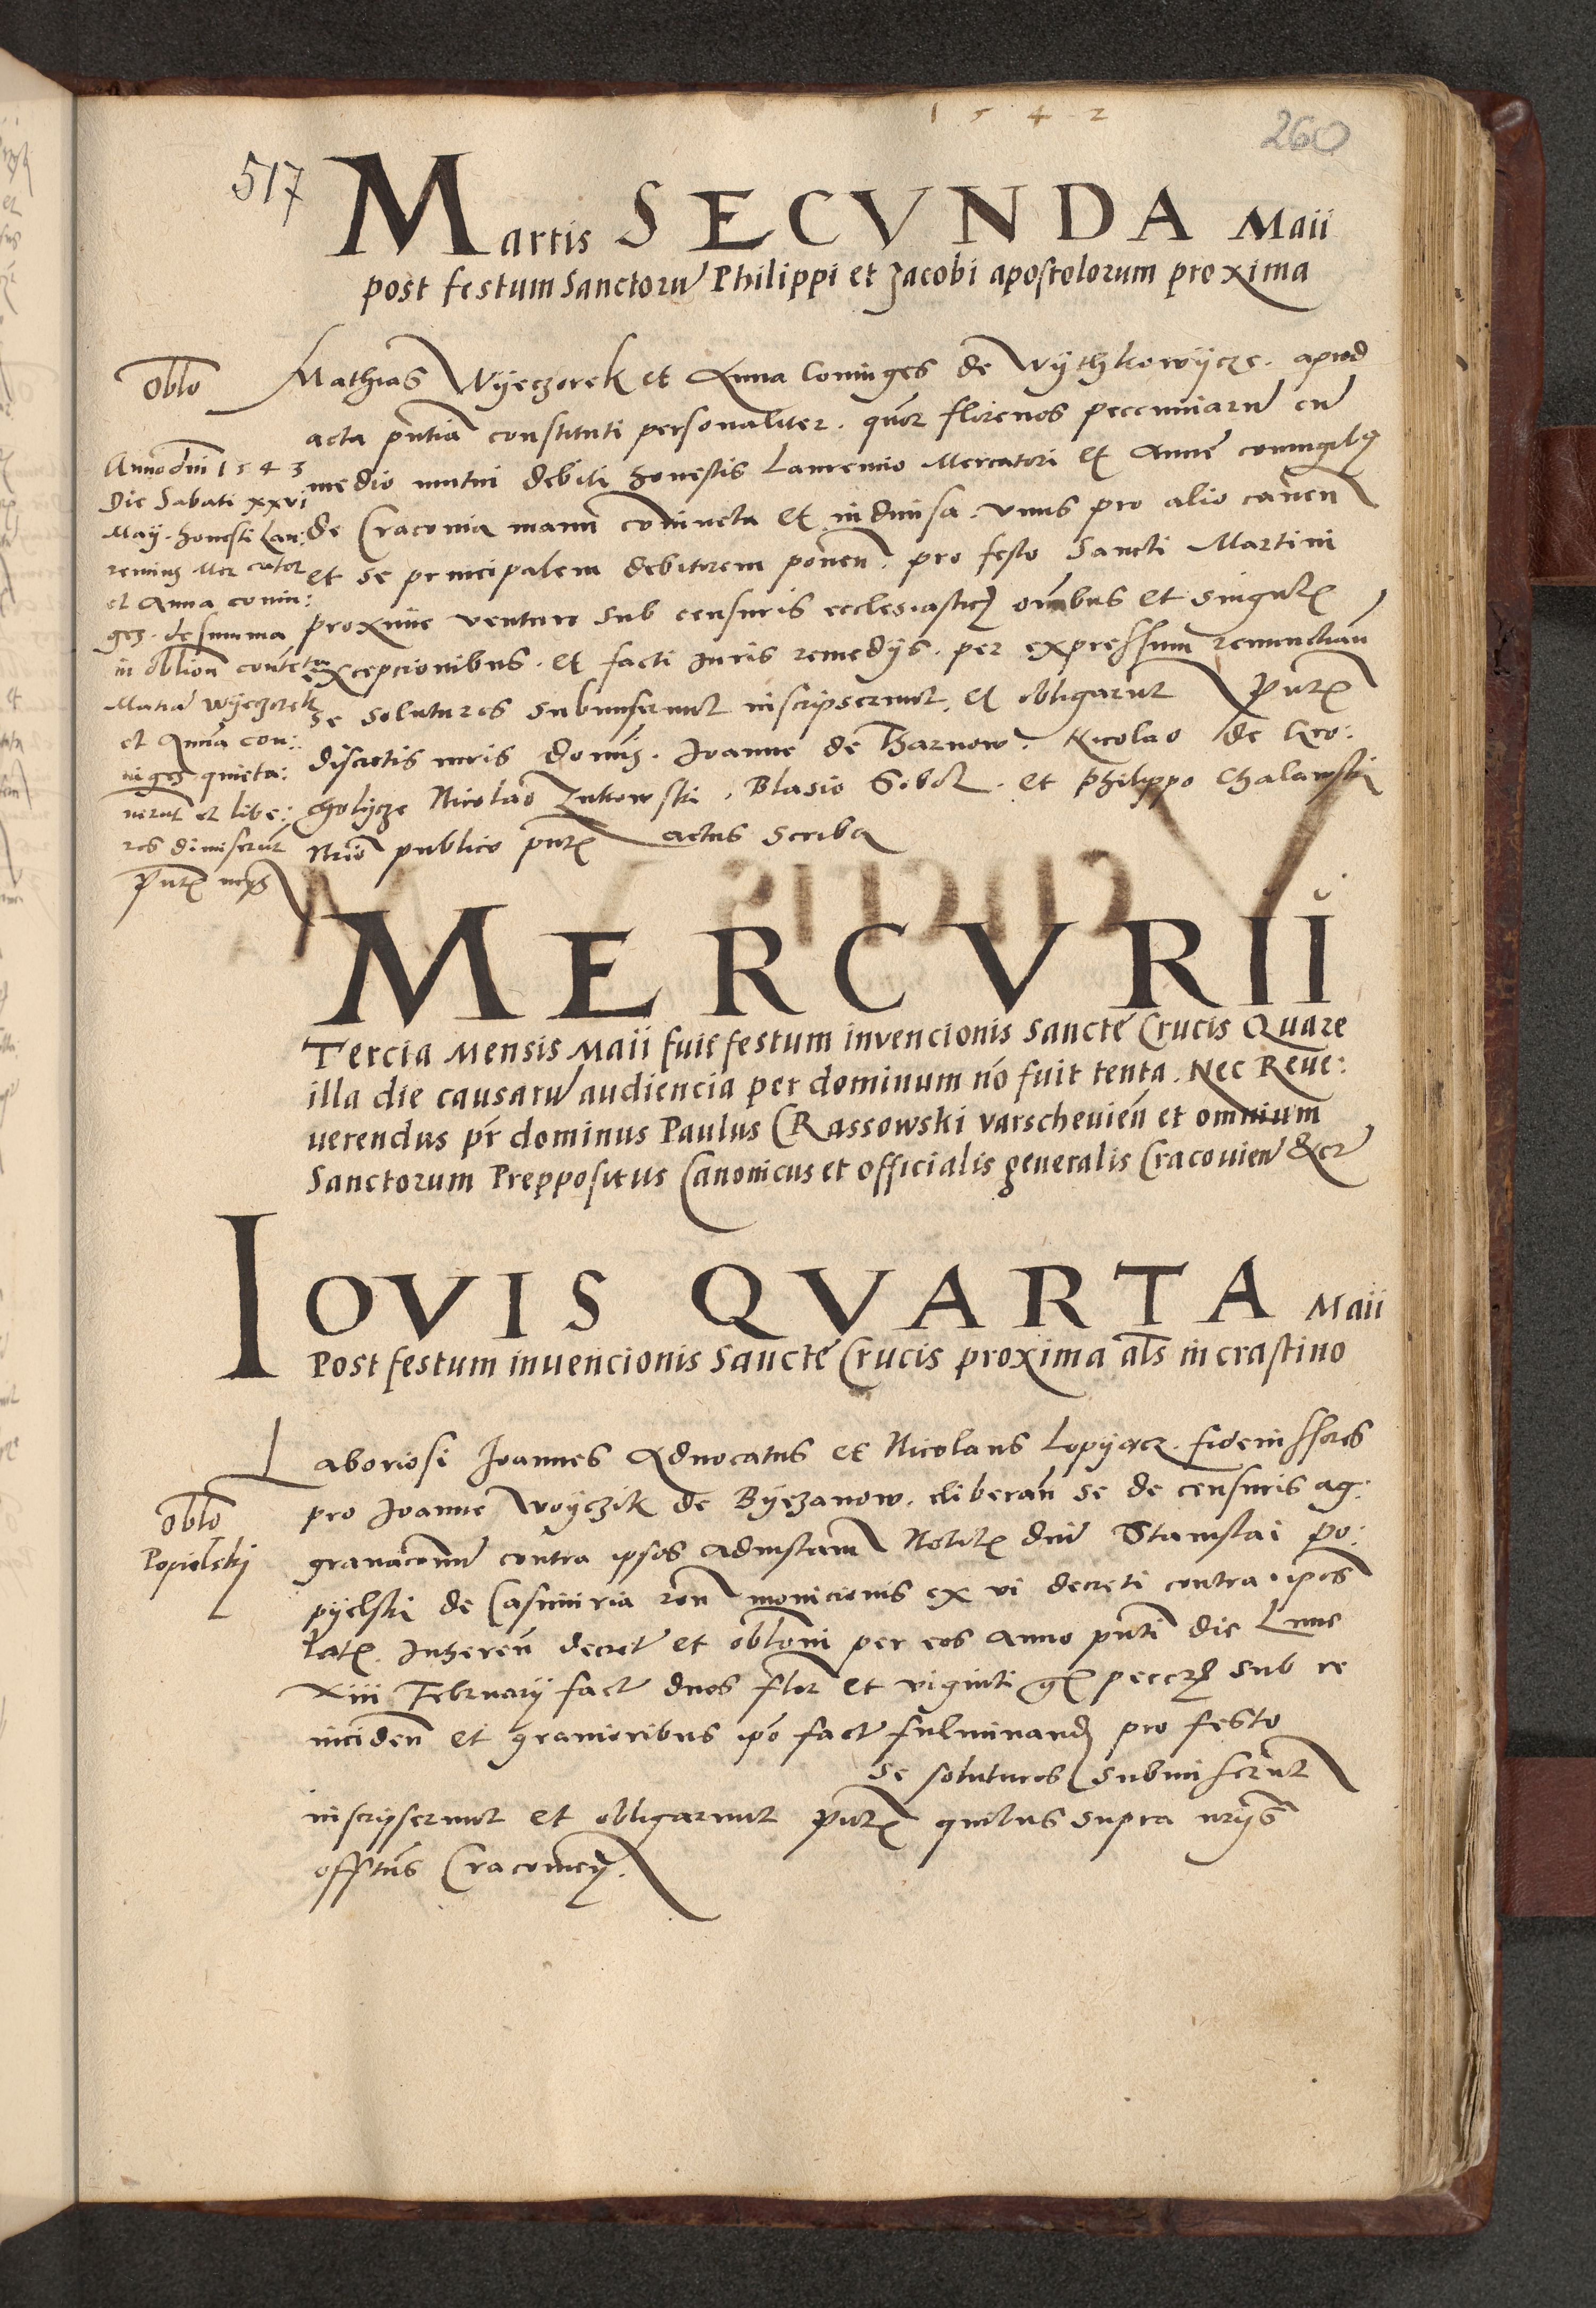 1542
260
517
Martis SECVNDA Maii
post festum Sanctorũ Philippi et Jacobi apostolorum proxima
oblõ
Mathias Wyeczorek et Anna Coniuges de Wythkowycze. apud
acta p̃ntia constituti personaliter. quõr florenos peccuniarũ cũ
medio mutui debiti honestis Laurencio Mercatori et Anne coniugibꝫ
de Cracouia manu coniuncta et indiuisa. vnus pro alio cauen̄
et se principalem debitorem ponen̄. pro festo Sancti Martini
proxime venturo sub censuris ecclesiastic̣ om̃ibus et singul̃
excepcionibus. et facti Iuris remedys. per expressum renunctian̄
se soluturos submiserunt inscripserunt. et obligarũt P̃nt̃
discretis viris dominis. Joanne de Tharnow. Nicolao de Kro:
Gholycze Nicolao Zukowski. Blasio Sobol. et Philippo Chalawski
Nrio publico p̃nt̃ actus scriba
Anno dñi 1543
Die Sabati xxvi
May. honesti Lau:
rencius Mercator
et Anna coniu:
ges. de summa
in obliõn contẽta
Matiã Wyeczorek
et Annã con:
iuges quieta:
uerũt et libe:
ros dimiserũt
p̃nt̃
MERCVRII
Tercia Mensis Maii fuit festum invencionis Sancte Crucis Quare
illa die causarũ audiencia per dominum nõ fuit tenta. Nec Reue:
uerendus pr̃ dominus Paulus CRassowski varscheuien̄ et omnium
Sanctorum Preppositus Canonicus et Officialis generalis Cracouien̄ &cr̃
IOVIS QVARTA Maii
Post festum inuencionis Sancte Crucis proxima al̃s in crastino
oblõ
Popielski
Laboriosi Joannes Aduocatus et Nicolaus Lopyacz. fideiussores
pro Joanne Woyczik de Byezanow. cliberan̄ se de censuris ag:
grauacionũ contra ipsos ad instan̄ Nobil̃ dñi Stanislai Po:
pyelski de Casimiria rõn monicionis ex vi decreti contra ip̃os
lat̃. Inheren̄ decret̃ et oblõni per eos anno p̃nti die Lune
xiii February fact̃ duos flor̃ et viginti g̃ peccũ sub re
inciden̄ et grauioribus ip̃o fact̃ fulminand̃ pro festo
se soluturos submiserũt
inscripserunt et obligarunt p̃nt̃ quibus supra nrys
offitus Cracouien̄.